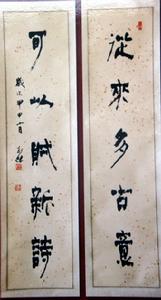 從來多古意
可以賦新詩
歲次甲申